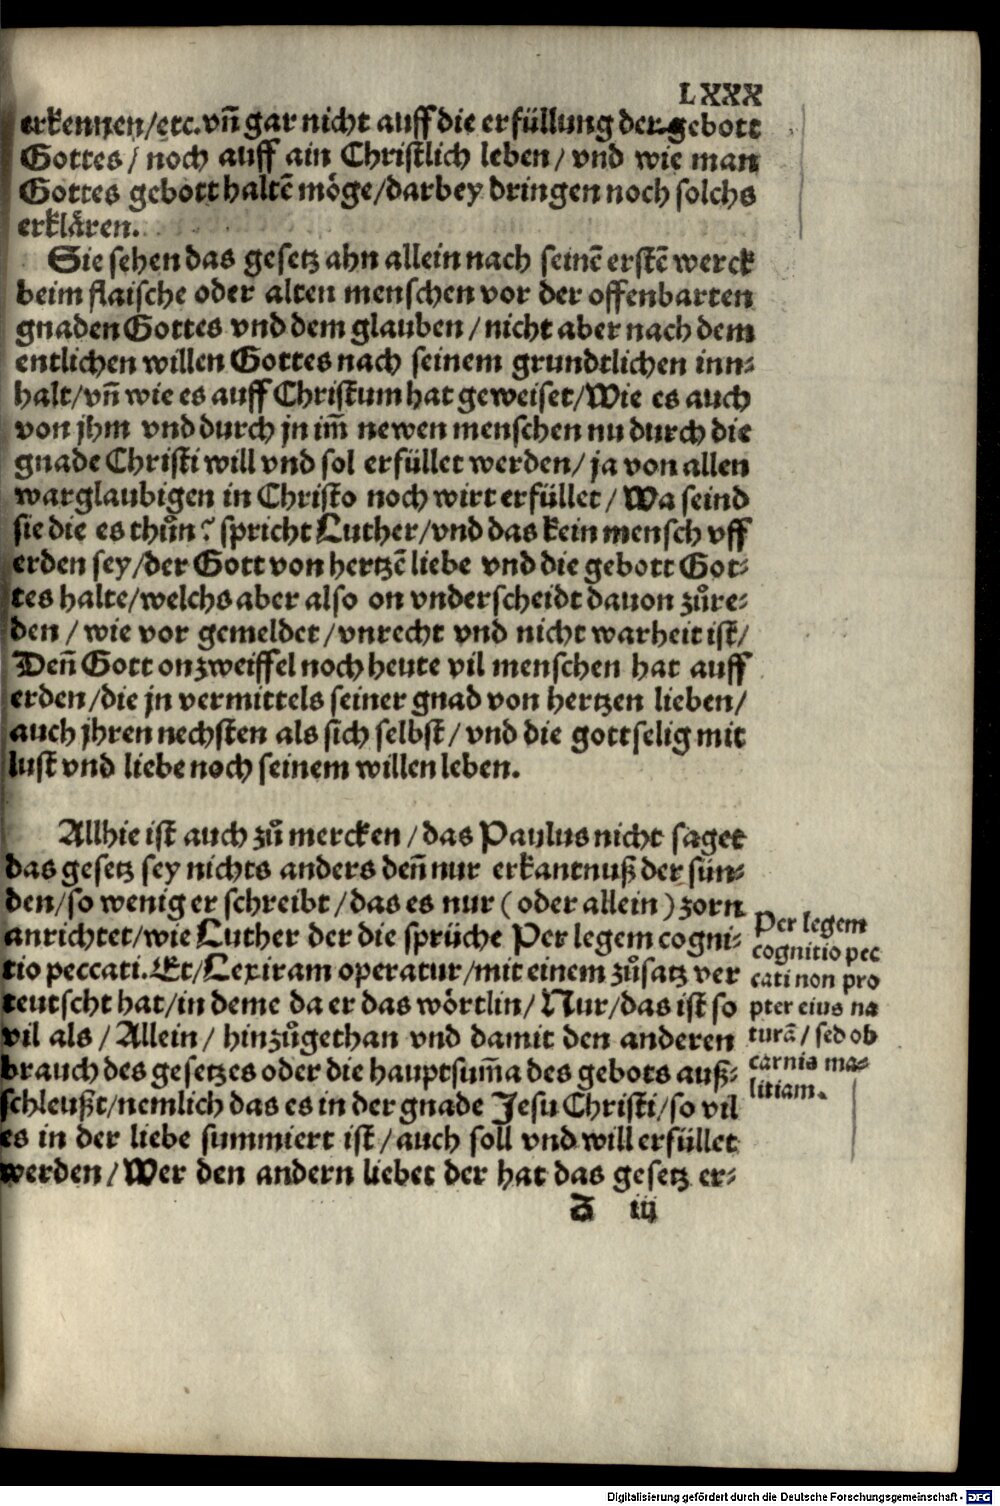 LXXX
erkennen/etc. vñ gar nicht auff die erfüllung der gebott
Gottes/ noch auff ain Christlich leben/ vnd wie man
Gottes gebott haltē möge/darbey dringen noch solchs
erklären.
Sie sehen das gesetz ahn allein nach seinē erstē werck
beim flaische oder alten menschen vor der offenbarten
gnaden Gottes vnd dem glauben/nicht aber nach dem
entlichen willen Gottes nach seinem grundtlichen inn⸗
halt/vñ wie es auff Christum hat geweiset/Wie es auch
von jhm vnd durch jn im̄ newen menschen nu durch die
gnade Christi will vnd sol erfüllet werden/ ja von allen
warglaubigen in Christo noch wirt erfüllet/ Wa seind
sie die es thůn? spricht Luther/vnd das kein mensch vff
erden sey/der Gott von hertzē liebe vnd die gebott Got⸗
tes halte/welchs aber also on vnderscheidt dauon zůre⸗
den/ wie vor gemeldet/vnrecht vnd nicht warheit ist/
Deñ Gott on zweiffel noch heute vil menschen hat auff
erden/die jn vermittels seiner gnad von hertzen lieben/
auch jhren nechsten als sich selbst/ vnd die gottselig mit
lust vnd liebe noch seinem willen leben.
Allhie ist auch zů mercken/das Paulus nicht saget
das gesetz sey nichts anders deñ nur erkantnuß der sün⸗
den/so wenig er schreibt/das es nur (oder allein) zorn
anrichtet/wie Luther der die sprüche Per legem cogni⸗
tio peccati. Et/Lex iram operatur/mit einem zůsatz ver
teutscht hat/in deme da er das wörtlin/ Nur/das ist so
vil als/Allein/ hinzůgethan vnd damit den anderen
brauch des gesetzes oder die hauptsum̄a des gebots auß⸗
schleußt/nemlich das es in der gnade Jesu Christi/so vil
es in der liebe summiert ist/auch soll vnd will erfüllet
werden/Wer den andern liebet der hat das gesetz er⸗
Per legem
cognitio pec
cati non pro
pter eius na
turā/ sed ob
carnis ma⸗
litiam.
a iij
Digitalisierung gefördert durch die Deutsche Forschungsgemeinschaft - DFG